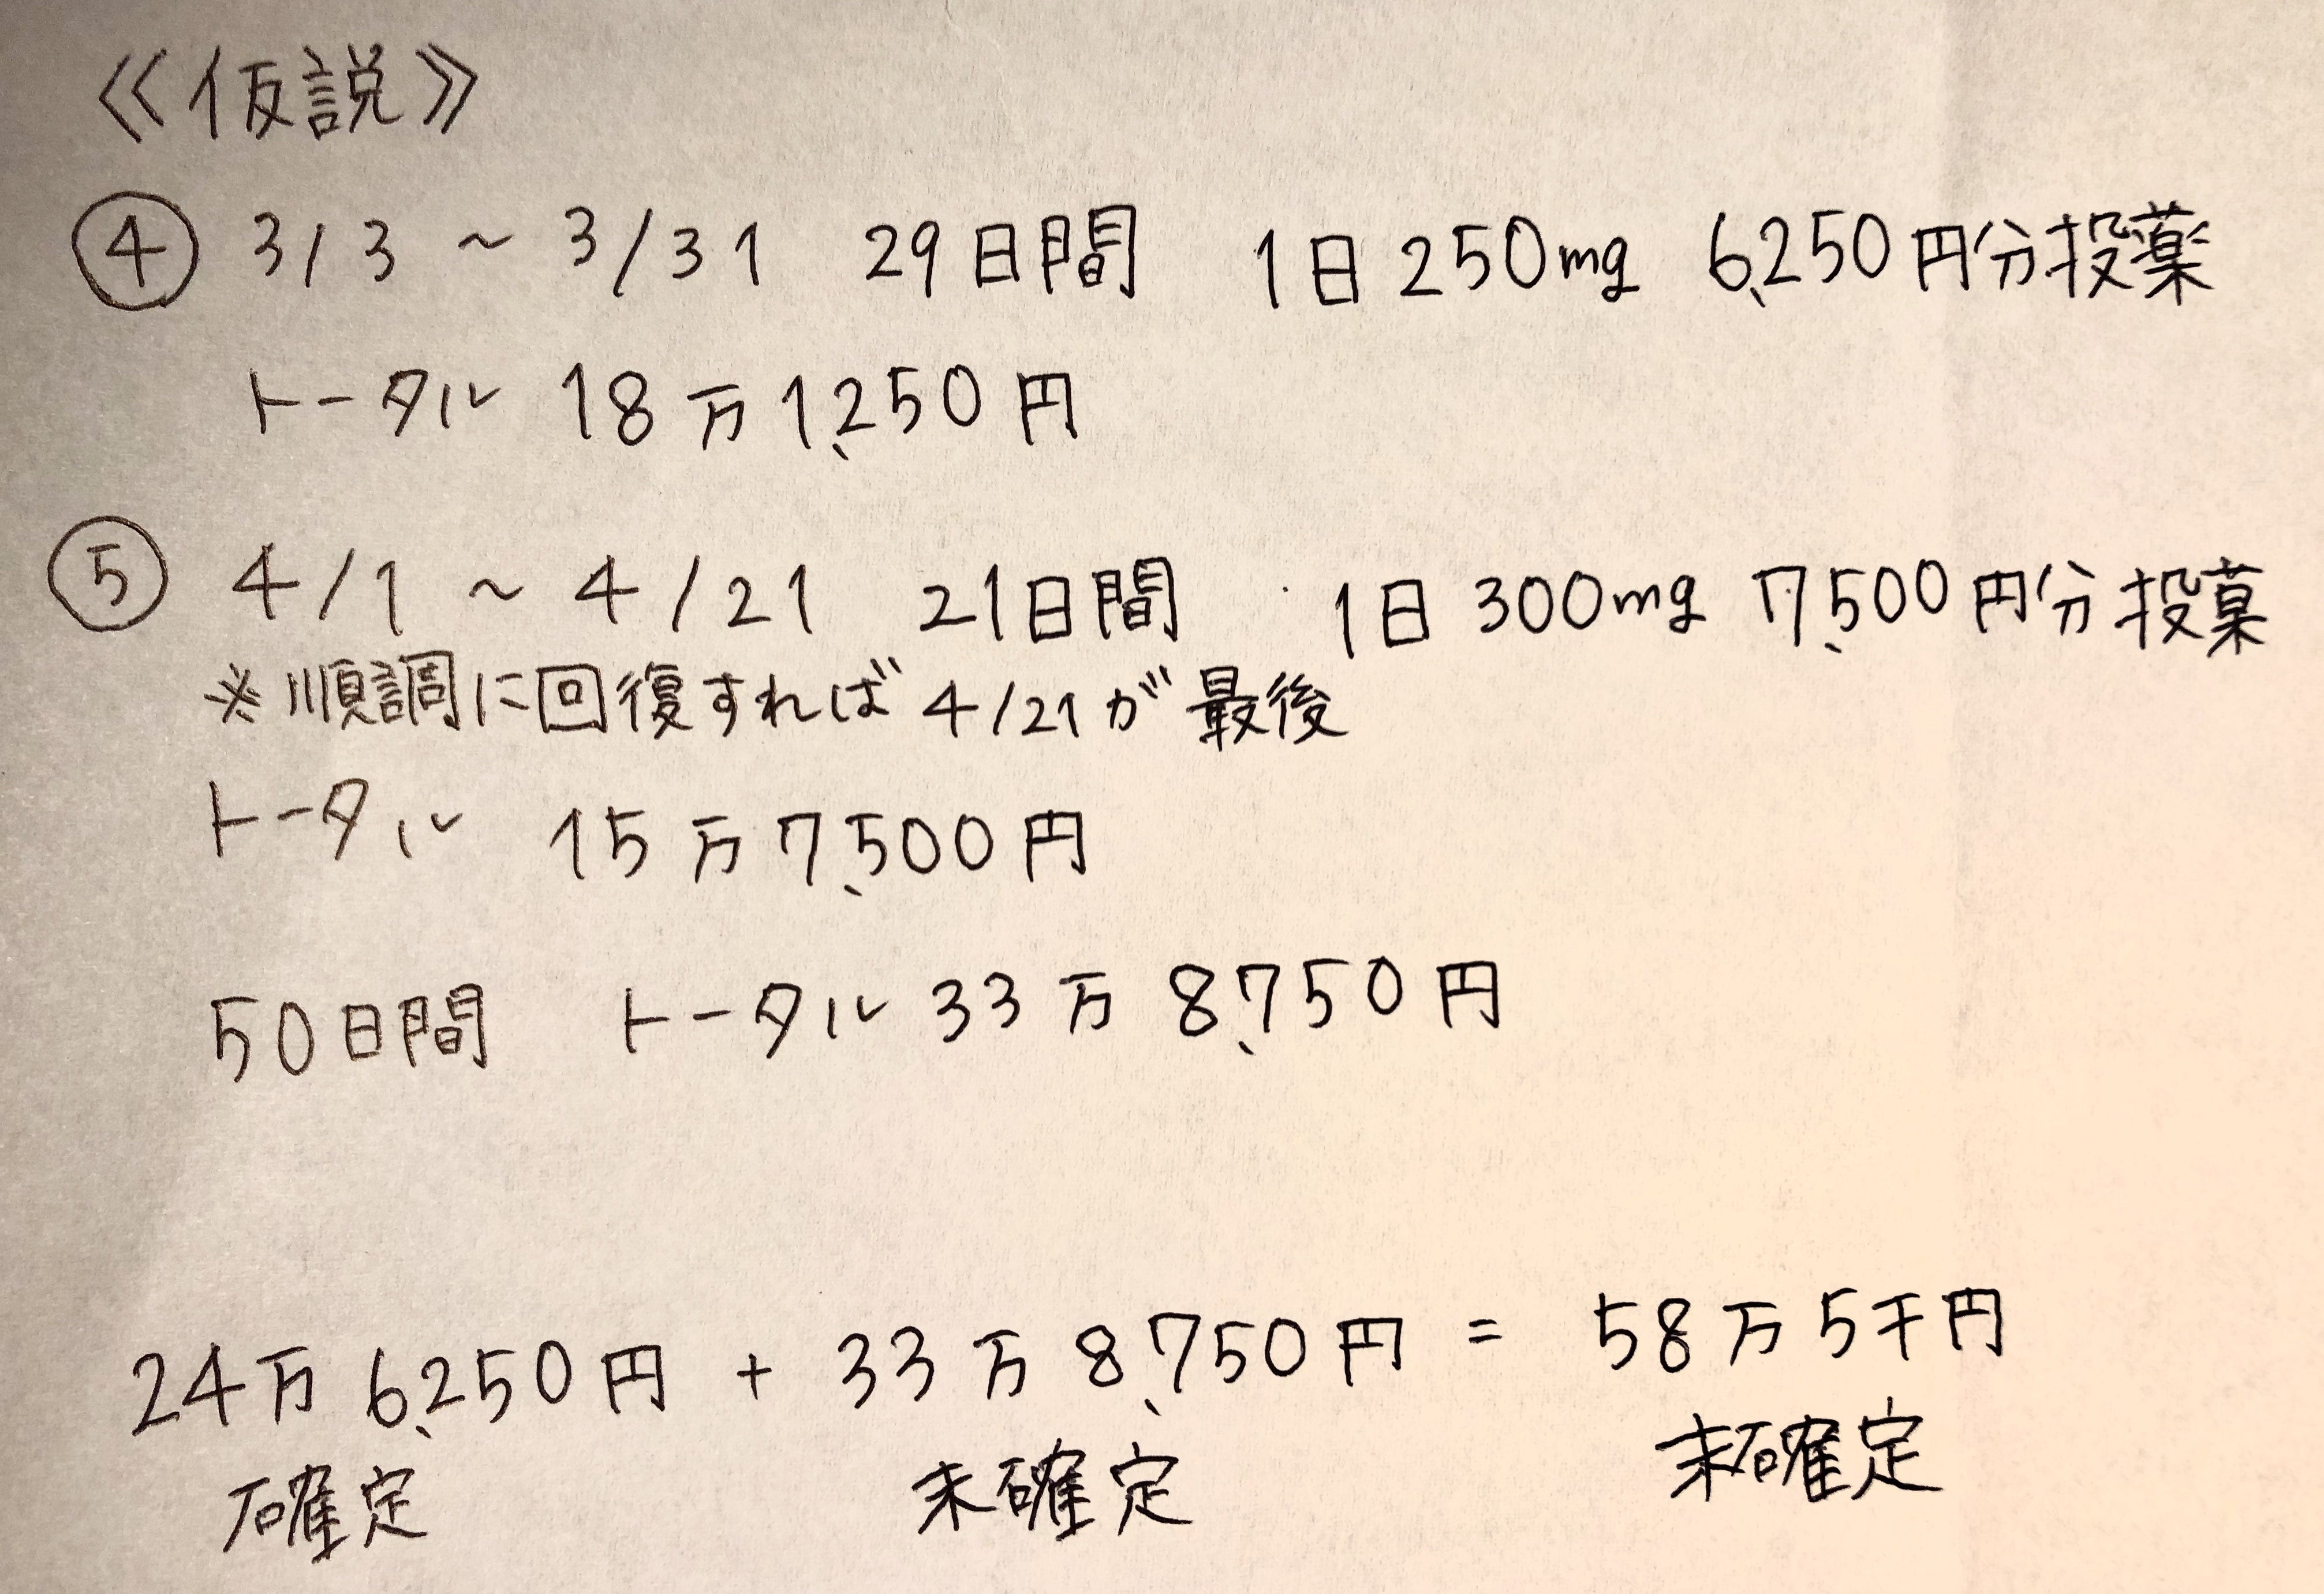 《仮説》
④ 3/3 ~ 3/31 29日間 1日 250mg 6,250円分投薬
トータル 18万1,250円
⑤ 4/1 ~ 4/21 21日間 1日 300mg 7,500円分投薬
※順調に回復すれば 4/21が最後
トータル 15万7,500円
50日間 トータル 33万8,750円
24万6,250円 + 33万8,750円 = 58万5千円
確定 未確定 未確定